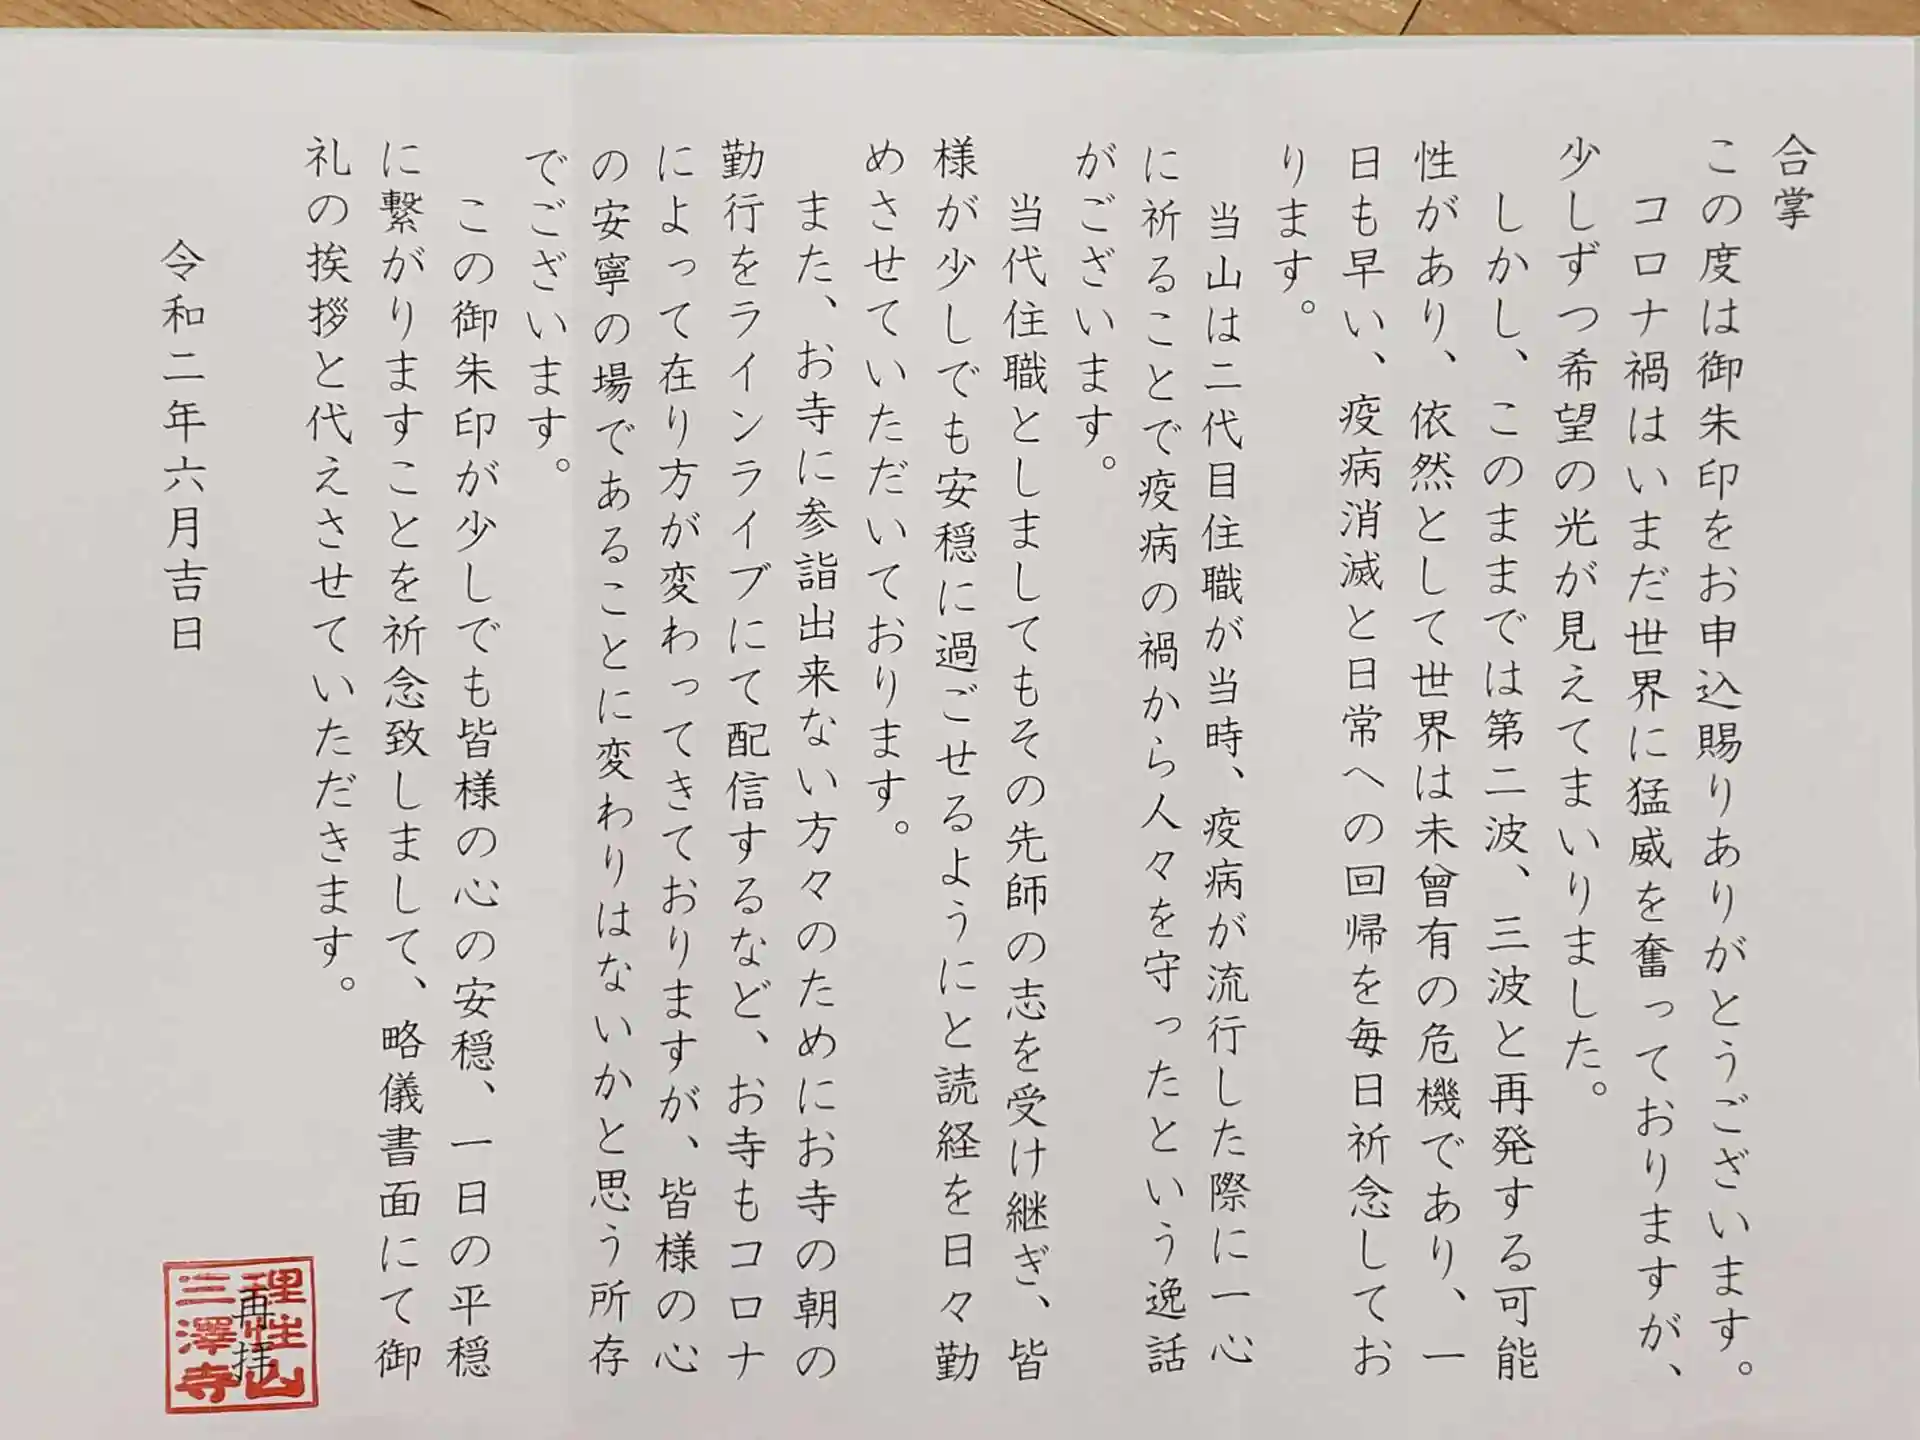 合掌
この度は御朱印をお申込賜りありがとうございます。
コロナ禍はいまだ世界に猛威を奮っておりますが、
少しずつ希望の光が見えてまいりました。
しかし、このままでは第二波、三波と再発する可能
性があり、依然として世界は未曾有の危機であり、一
日も早い、疫病消滅と日常への回帰を毎日祈念してお
ります。
当山は二代目住職が当時、疫病が流行した際に一心
に祈ることで疫病の禍から人々を守ったという逸話
がございます。
当代住職としましてもその先師の志を受け継ぎ、皆
様が少しでも安穏に過ごせるようにと読経を日々勤
めさせていただいております。
また、お寺に参詣出来ない方々のためにお寺の朝の
勤行をラインライブにて配信するなど、お寺もコロナ
によって在り方が変わってきておりますが、皆様の心
の安寧の場であることに変わりはないかと思う所存
でございます。
この御朱印が少しでも皆様の心の安穏、一日の平穏
に繋がりますことを祈念致しまして、略儀書面にて御
礼の挨拶と代えさせていただきます。
再拝
令和二年六月吉日
理性山
三澤寺